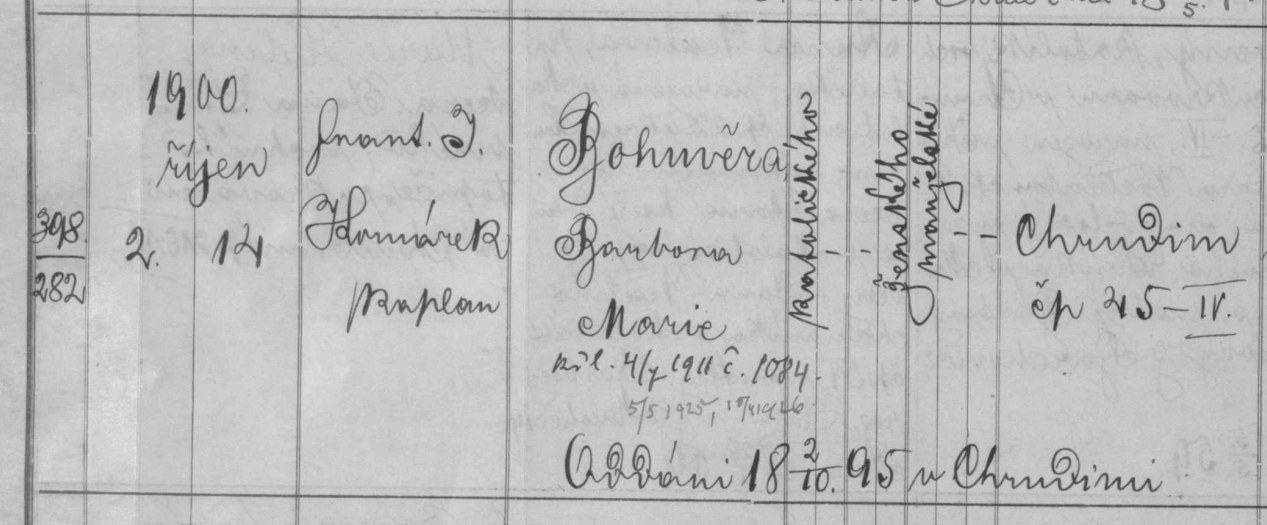 1900.
říjen
398.
282
2. 14
Frant. J.
Komárek
kaplan
Bohuvěra
Barbora
Marie
kř. l. 4/7 1911 č. 1084.
5/5 1925,
katolického
ženského
manželské
Chrudim
čp 25-IV.
Oddáni 18 2/10. 95 v Chrudimi